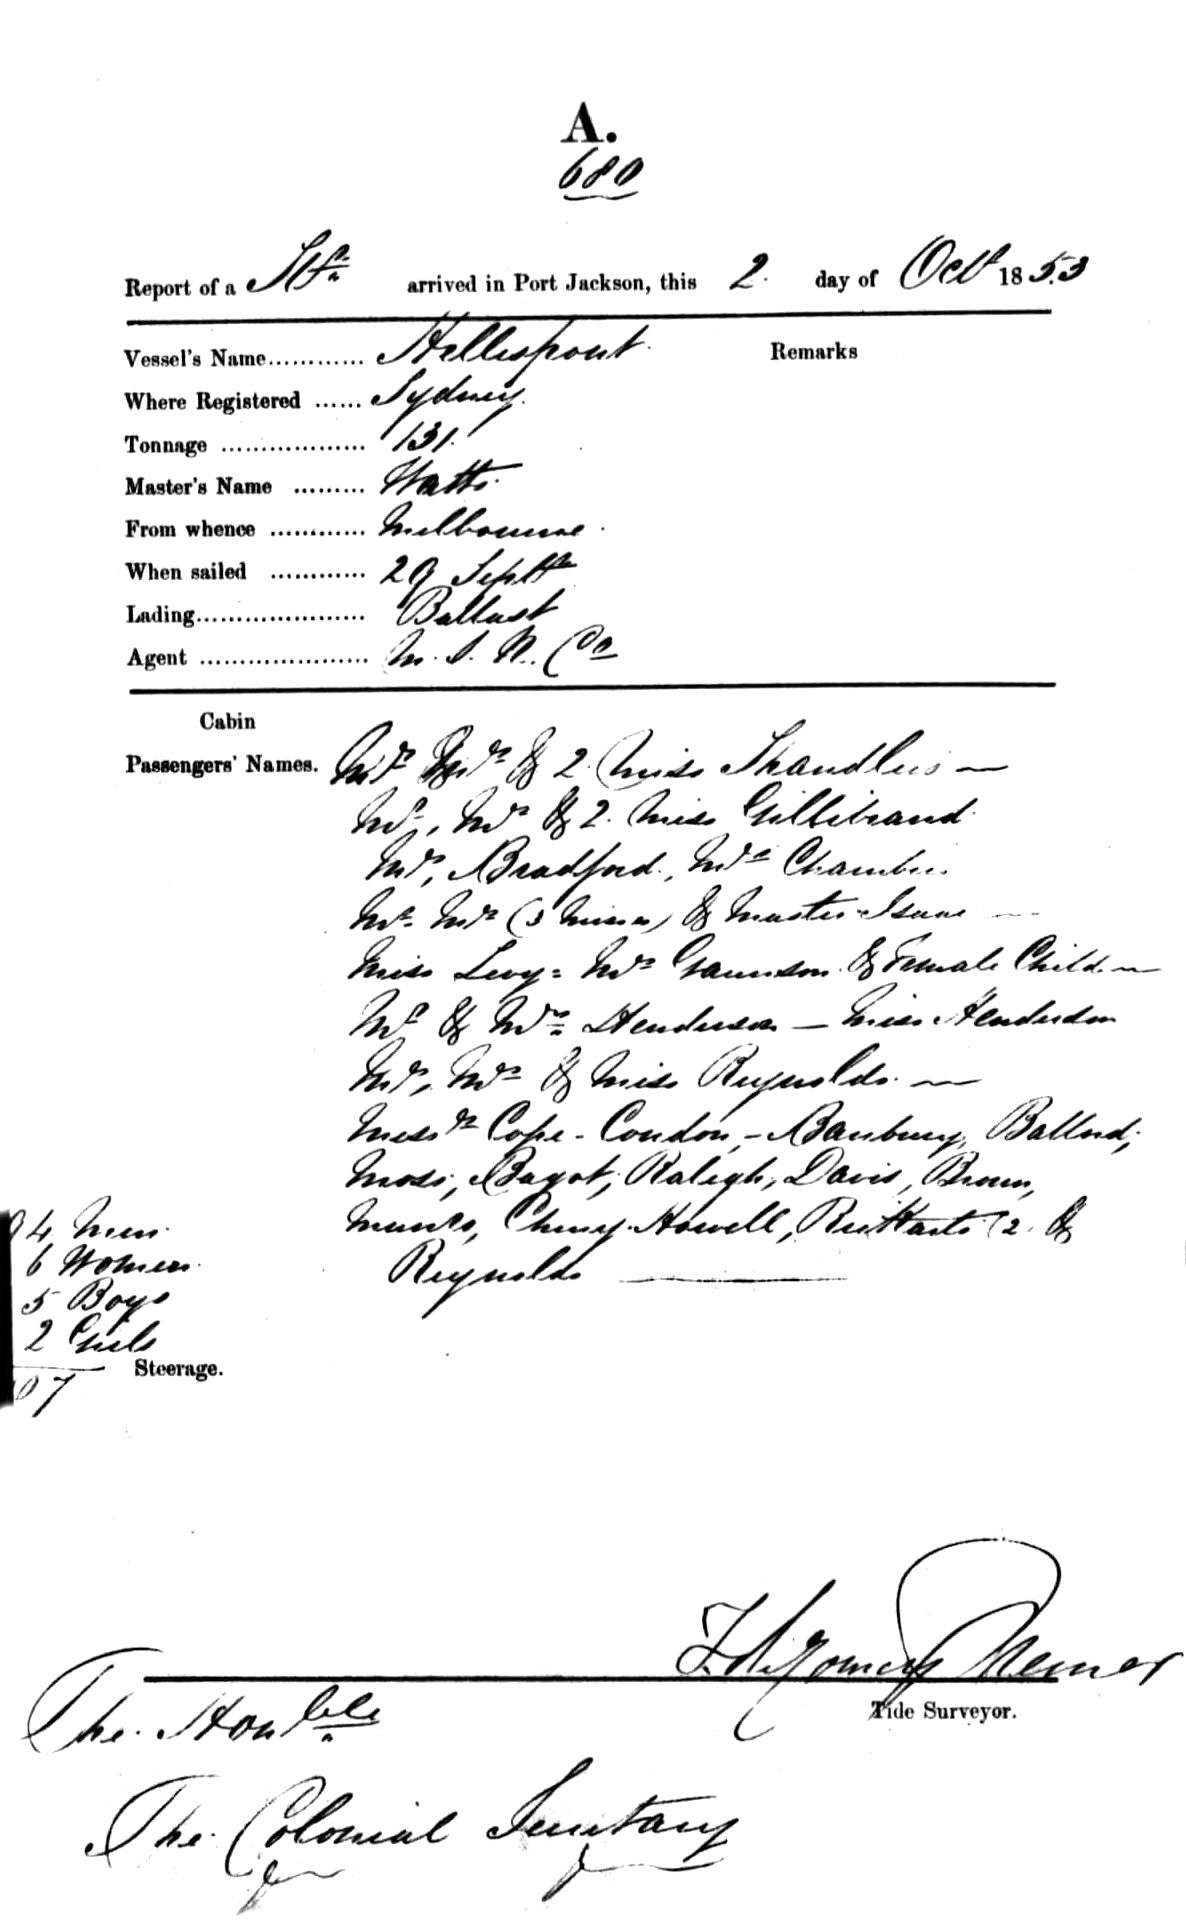 A.
680
Report of a Str arrived in Port Jackson, this 2. day of Octr 1853
Vessel's Name............ Hellespont. Remarks
Where Registered ...... Sydney.
Tonnage .................. 131.
Master's Name ......... Watts.
From whence ............ Melbourne.
When sailed ............ 29 Septr
Lading..................... Ballast
Agent ...................... M. S. N. Co
Cabin
Passengers' Names. Mr Mrs & 2 Miss —
Mr, Mrs & 2. Miss Gillibrand
Mr, Bradford., Mrs Chambers.
Mr. Mrs (3 Misses) & Master Isaac —
Miss Levy = Mrs Gaunson & Female Child —
Mr & Mrs Henderson — Miss Henderson
Mr, Mrs & Miss Reynolds. —
Messrs Cope - Condon, - Banbury, Ballard,
Moss, Bagot, Raleigh, Davis, Brown,
Munro, Howell, (2. &
Reynolds —
94 Men
6 Women.
5 Boys
2 Girls
Steerage.
107
Tide Surveyor.
The Honble
The Colonial Secretary